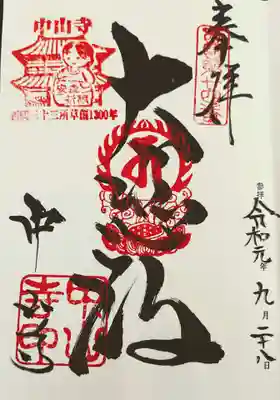 奉拝
中山寺
安産祈願
西国三十三所草創1300年
大悲殿
中山寺
中山寺印
参拝 令和元年 九月二十八日